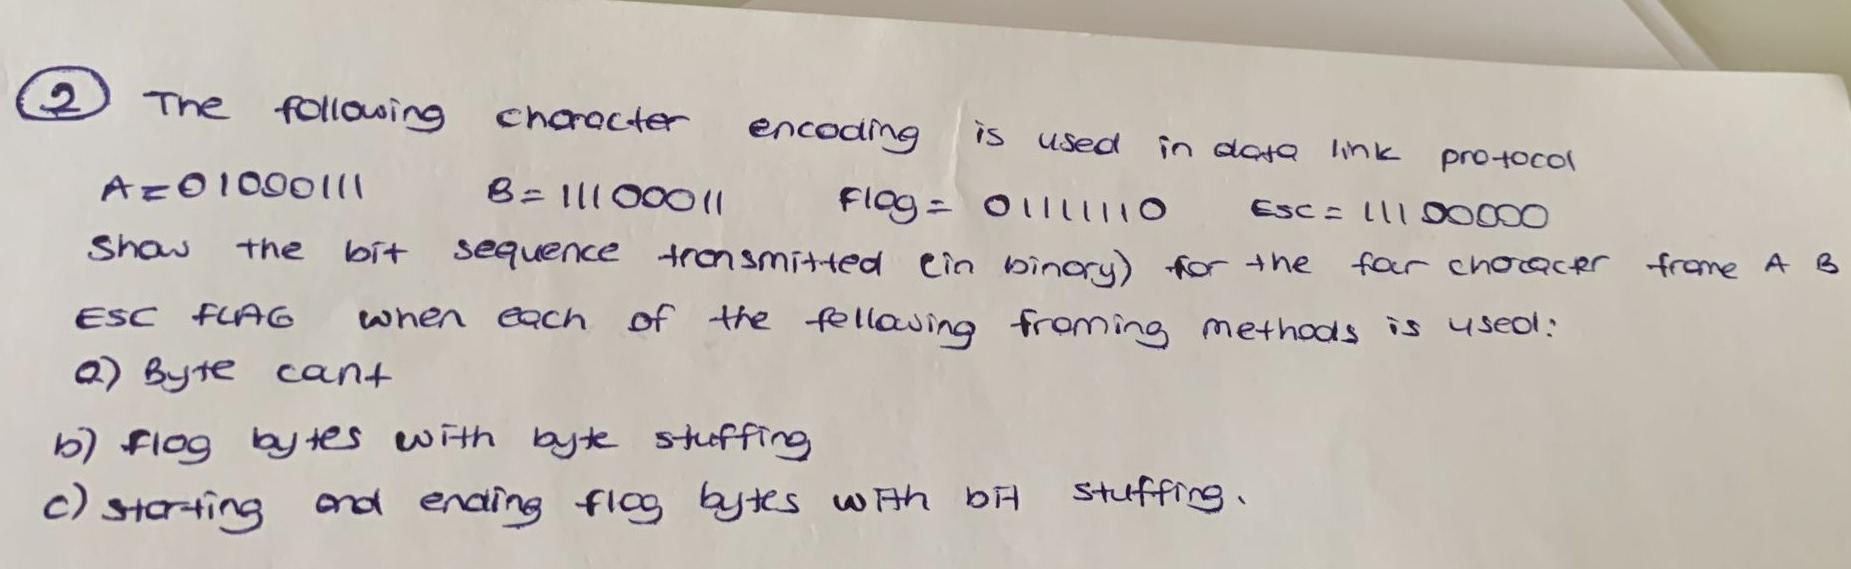 2 The following character encoding is used in data link protocol
A=01000111 B=11100011 Flag=01111110 ESC=11100000
Show the bit sequence transmitted (in binary) for the four choracer frame A B
ESC FLAG when each of the fellowing framing methods is used:
a) Byte cant
b) flag bytes with byte stuffing
c) starting and ending flag bytes with bit stuffing.